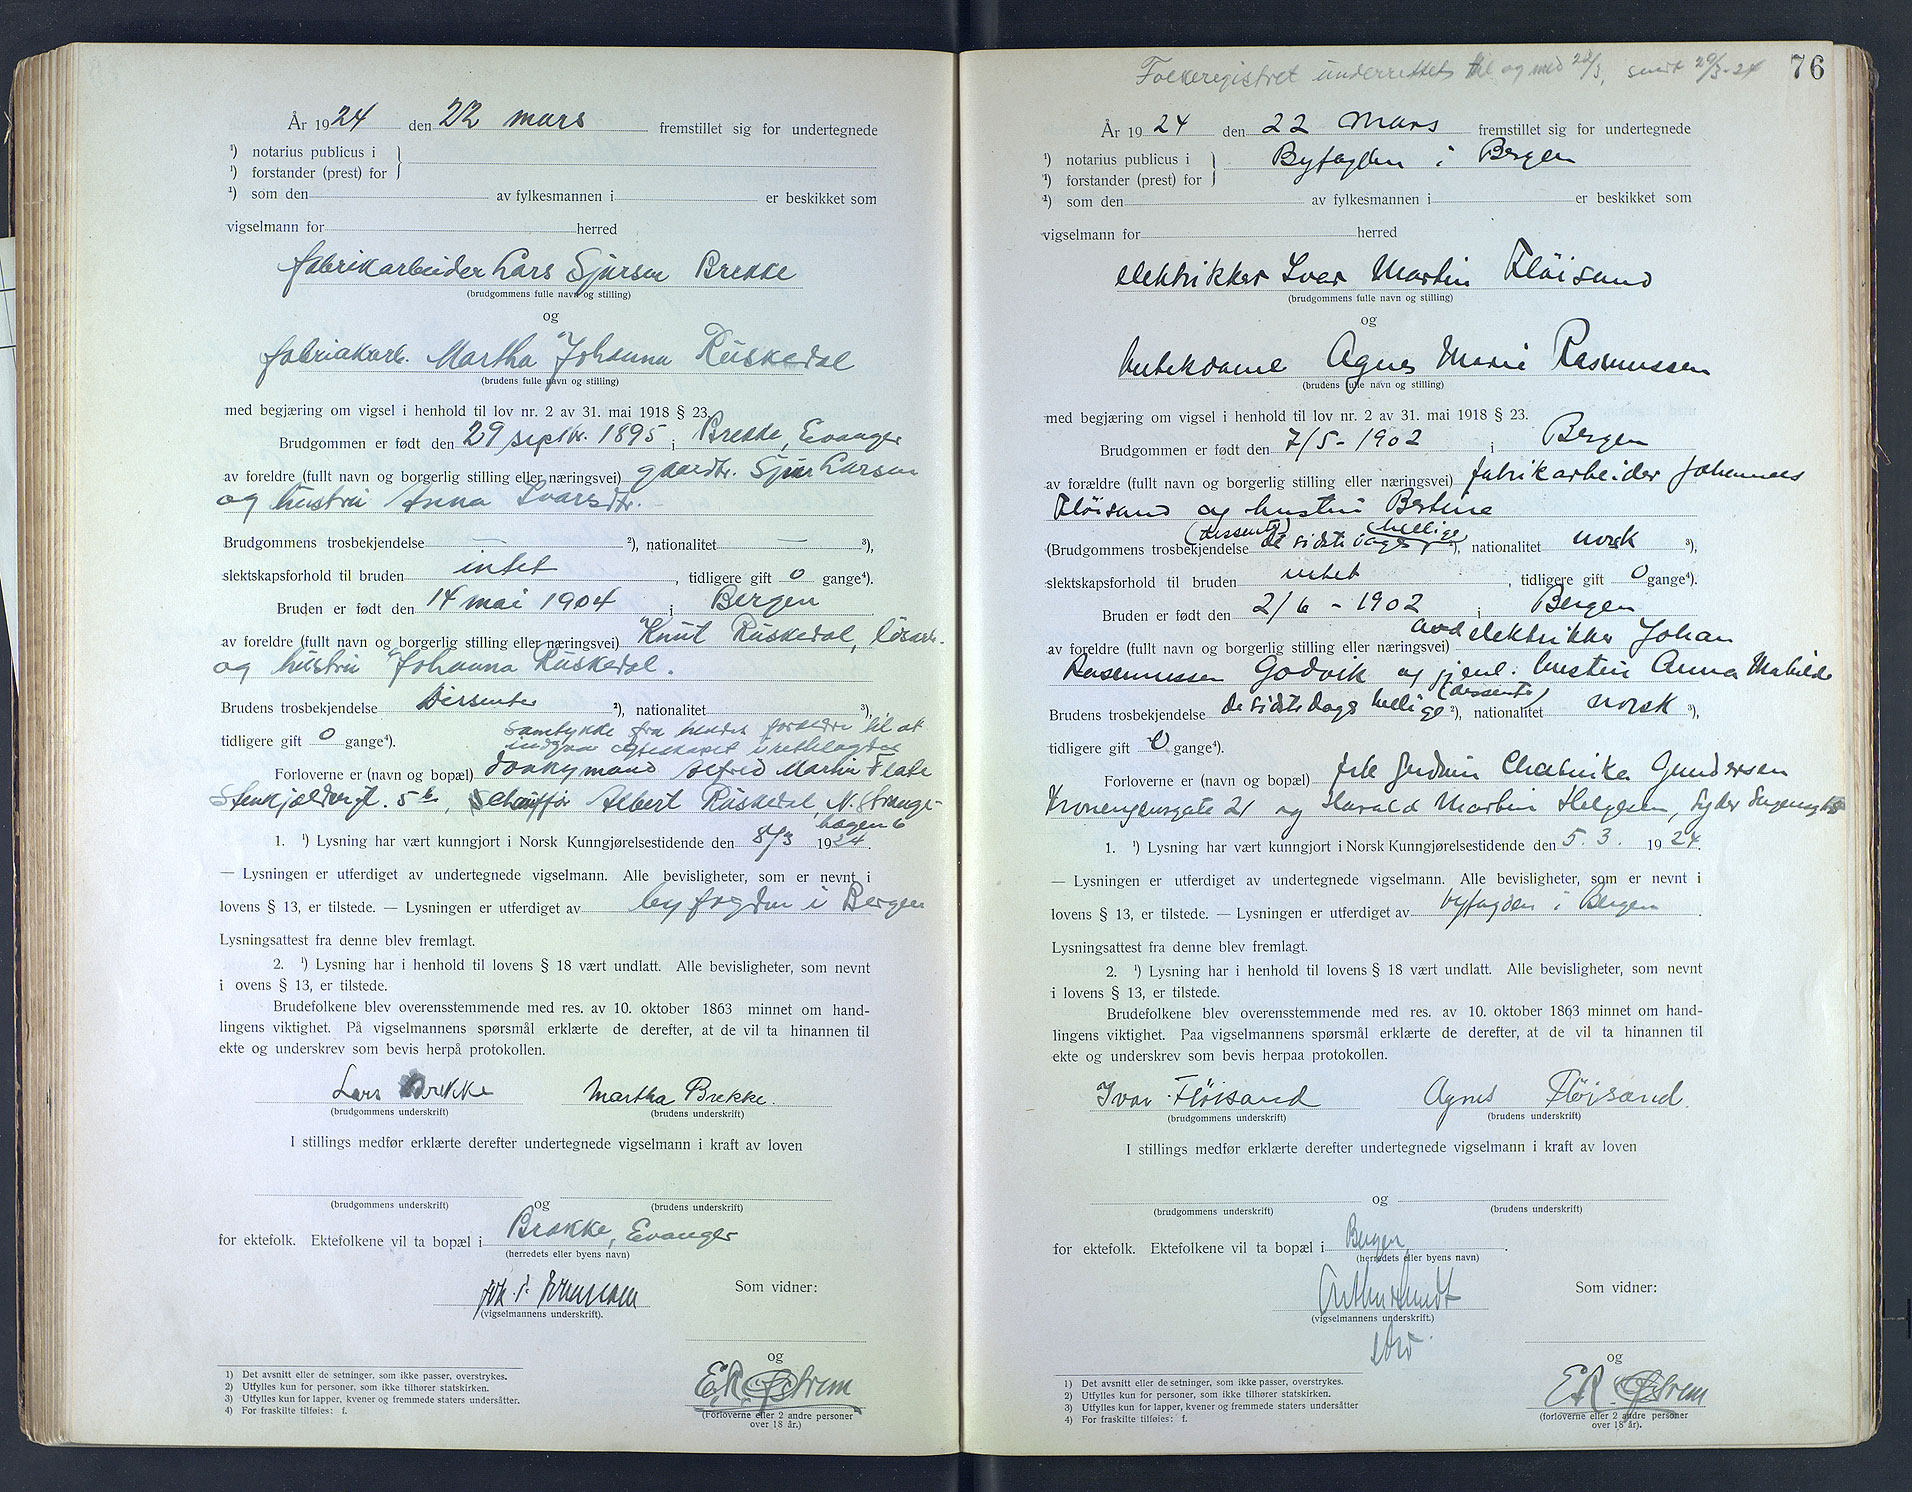 År 1924 den 22 mars fremstillet sig for undertegnede
¹) notarius publicus i
¹) forstander (prest) for
¹) som den av fylkesmannen i er beskikket som
vigselmann for herred
fabrikarbeider Lars Sjursen Brekke
(brudgommens fulle navn og stilling)
og
fabriakarb. Martha Johanna Ruskedal
(brudens fulle navn og stilling)
med begjæring om vigsel i henhold til lov nr. 2 av 31. mai 1918 § 23.
Brudgommen er født den 29 septbr. 1895 i Brekke, Evanger
av foreldre (fullt navn og borgerlig stilling eller næringsvei) gaardbr. Sjur Larsen
og hustru Anna Ivarsdtr.
Brudgommens trosbekjendelse — ²), nationalitet — ³),
slektskapsforhold til bruden intet, tidligere gift 0 gange⁴).
Bruden er født den 14 mai 1904 i Bergen
av foreldre (fullt navn og borgerlig stilling eller næringsvei) Knut Ruskedal, løsarb.
og hustru Johanna Ruskedal.
Brudens trosbekjendelse Dissenter ²), nationalitet ³),
samtykke fra hendes forældre til at
tidligere gift 0 gange⁴). indgaa egteskapet
Forloverne er (navn og bopæl) donkymand Alfred Martin Flate
5 b, chauffør Albert Ruskedal, N. Strange-
hagen 6
1. ¹) Lysning har vært kunngjort i Norsk Kunngjørelsestidende den 8/3 1924.
— Lysningen er utferdiget av undertegnede vigselmann. Alle bevisligheter, som er nevnt i
lovens § 13, er tilstede. — Lysningen er utferdiget av byfogden i Bergen
Lysningsattest fra denne blev fremlagt.
2. ¹) Lysning har i henhold til lovens § 18 vært undlatt. Alle bevisligheter, som nevnt
i ovens § 13, er tilstede.
Brudefolkene blev overensstemmende med res. av 10. oktober 1863 minnet om hand-
lingens viktighet. På vigselmannens spørsmål erklærte de derefter, at de vil ta hinannen til
ekte og underskrev som bevis herpå protokollen.
Lars Brekke Martha Brekke.
(brudgommens underskrift) (brudens underskrift)
I stillings medfør erklærte derefter undertegnede vigselmann i kraft av loven
og
(brudgommens underskrift) (brudens underskrift)
for ektefolk. Ektefolkene vil ta bopæl i Brekke, Evanger
(herredets eller byens navn)
Som vidner:
(vigselmannens underskrift).
og
E R Østrem
(Forloverne eller 2 andre personer
over 18 år.)
1) Det avsnitt eller de setninger, som ikke passer, overstrykes.
2) Utfylles kun for personer, som ikke tilhører statskirken.
3) Utfylles kun for lapper, kvener og fremmede staters undersåtter.
4) For fraskilte tilføies: f.
Folkeregistret underrettet til og med 22/3, sendt 29/3-24 76
År 1924 den 22 Mars fremstillet sig for undertegnede
¹) notarius publicus i Byfogden i Bergen
¹) forstander (prest) for
¹) som den av fylkesmannen i er beskikket som
vigselmann for herred
elektrikker Ivar Martin Fløisand
(brudgommens fulle navn og stilling)
og
butikdame Agnes Marie Rasmussen
(brudens fulle navn og stilling)
med begjæring om vigsel i henhold til lov nr. 2 av 31. mai 1918 § 23.
Brudgommen er født den 7/5 - 1902 i Bergen
av forældre (fullt navn og borgerlig stilling eller næringsvei) fabrikarbeider Johannes
Fløisand og hustru Bertine
(dissenter) hellige
(Brudgommens trosbekjendelse de sidste dages ²), nationalitet norsk ³),
slektskapsforhold til bruden intet, tidligere gift 0 gange⁴).
Bruden er født den 2/6 - 1902 i Bergen
av foreldre (fullt navn og borgerlig stilling eller næringsvei) avd elektrikker Johan
Rasmussen Godvik og gjenl. hustru Anna Mathilde
Brudens trosbekjendelse de sidste dags hellige ²), (dissenter) nationalitet norsk ³),
tidligere gift 0 gange⁴).
Forloverne er (navn og bopæl) frk Gudrun Cathrike Gundersen
Kronengensgate 21 og Harald Martin Helgesen,
1. ¹) Lysning har vært kunngjort i Norsk Kunngjørelsestidende den 5. 3. 1924.
— Lysningen er utferdiget av undertegnede vigselmann. Alle bevisligheter, som er nevnt i
lovens § 13, er tilstede. — Lysningen er utferdiget av byfogden i Bergen.
Lysningsattest fra denne blev fremlagt.
2. ¹) Lysning har i henhold til lovens § 18 vært undlatt. Alle bevisligheter, som nevnt
i lovens § 13, er tilstede.
Brudefolkene blev overensstemmende med res. av 10. oktober 1863 minnet om hand-
lingens viktighet. Paa vigselmannens spørsmål erklærte de derefter, at de vil ta hinannen til
ekte og underskrev som bevis herpaa protokollen.
Ivar Fløisand Agnes Fløisand.
(brudgommens underskrift) (brudens underskrift)
I stillings medfør erklærte derefter undertegnede vigselmann i kraft av loven
og
(brudgommens underskrift) (brudens underskrift)
for ektefolk. Ektefolkene vil ta bopæl i Bergen.
(herredets eller byens navn)
Arthur Sundt Som vidner:
(vigselmannens underskrift.)
og
E R Østrem
(forloverne eller 2 andre personer
over 18 år).
1) Det avsnitt eller de setninger, som ikke passer, overstrykes.
2) Utfylles kun for personer, som ikke tilhører statskirken.
3) Utfylles kun for lapper, kvener og fremmede staters undersåtter
4) For fraskilte tilføies: f.